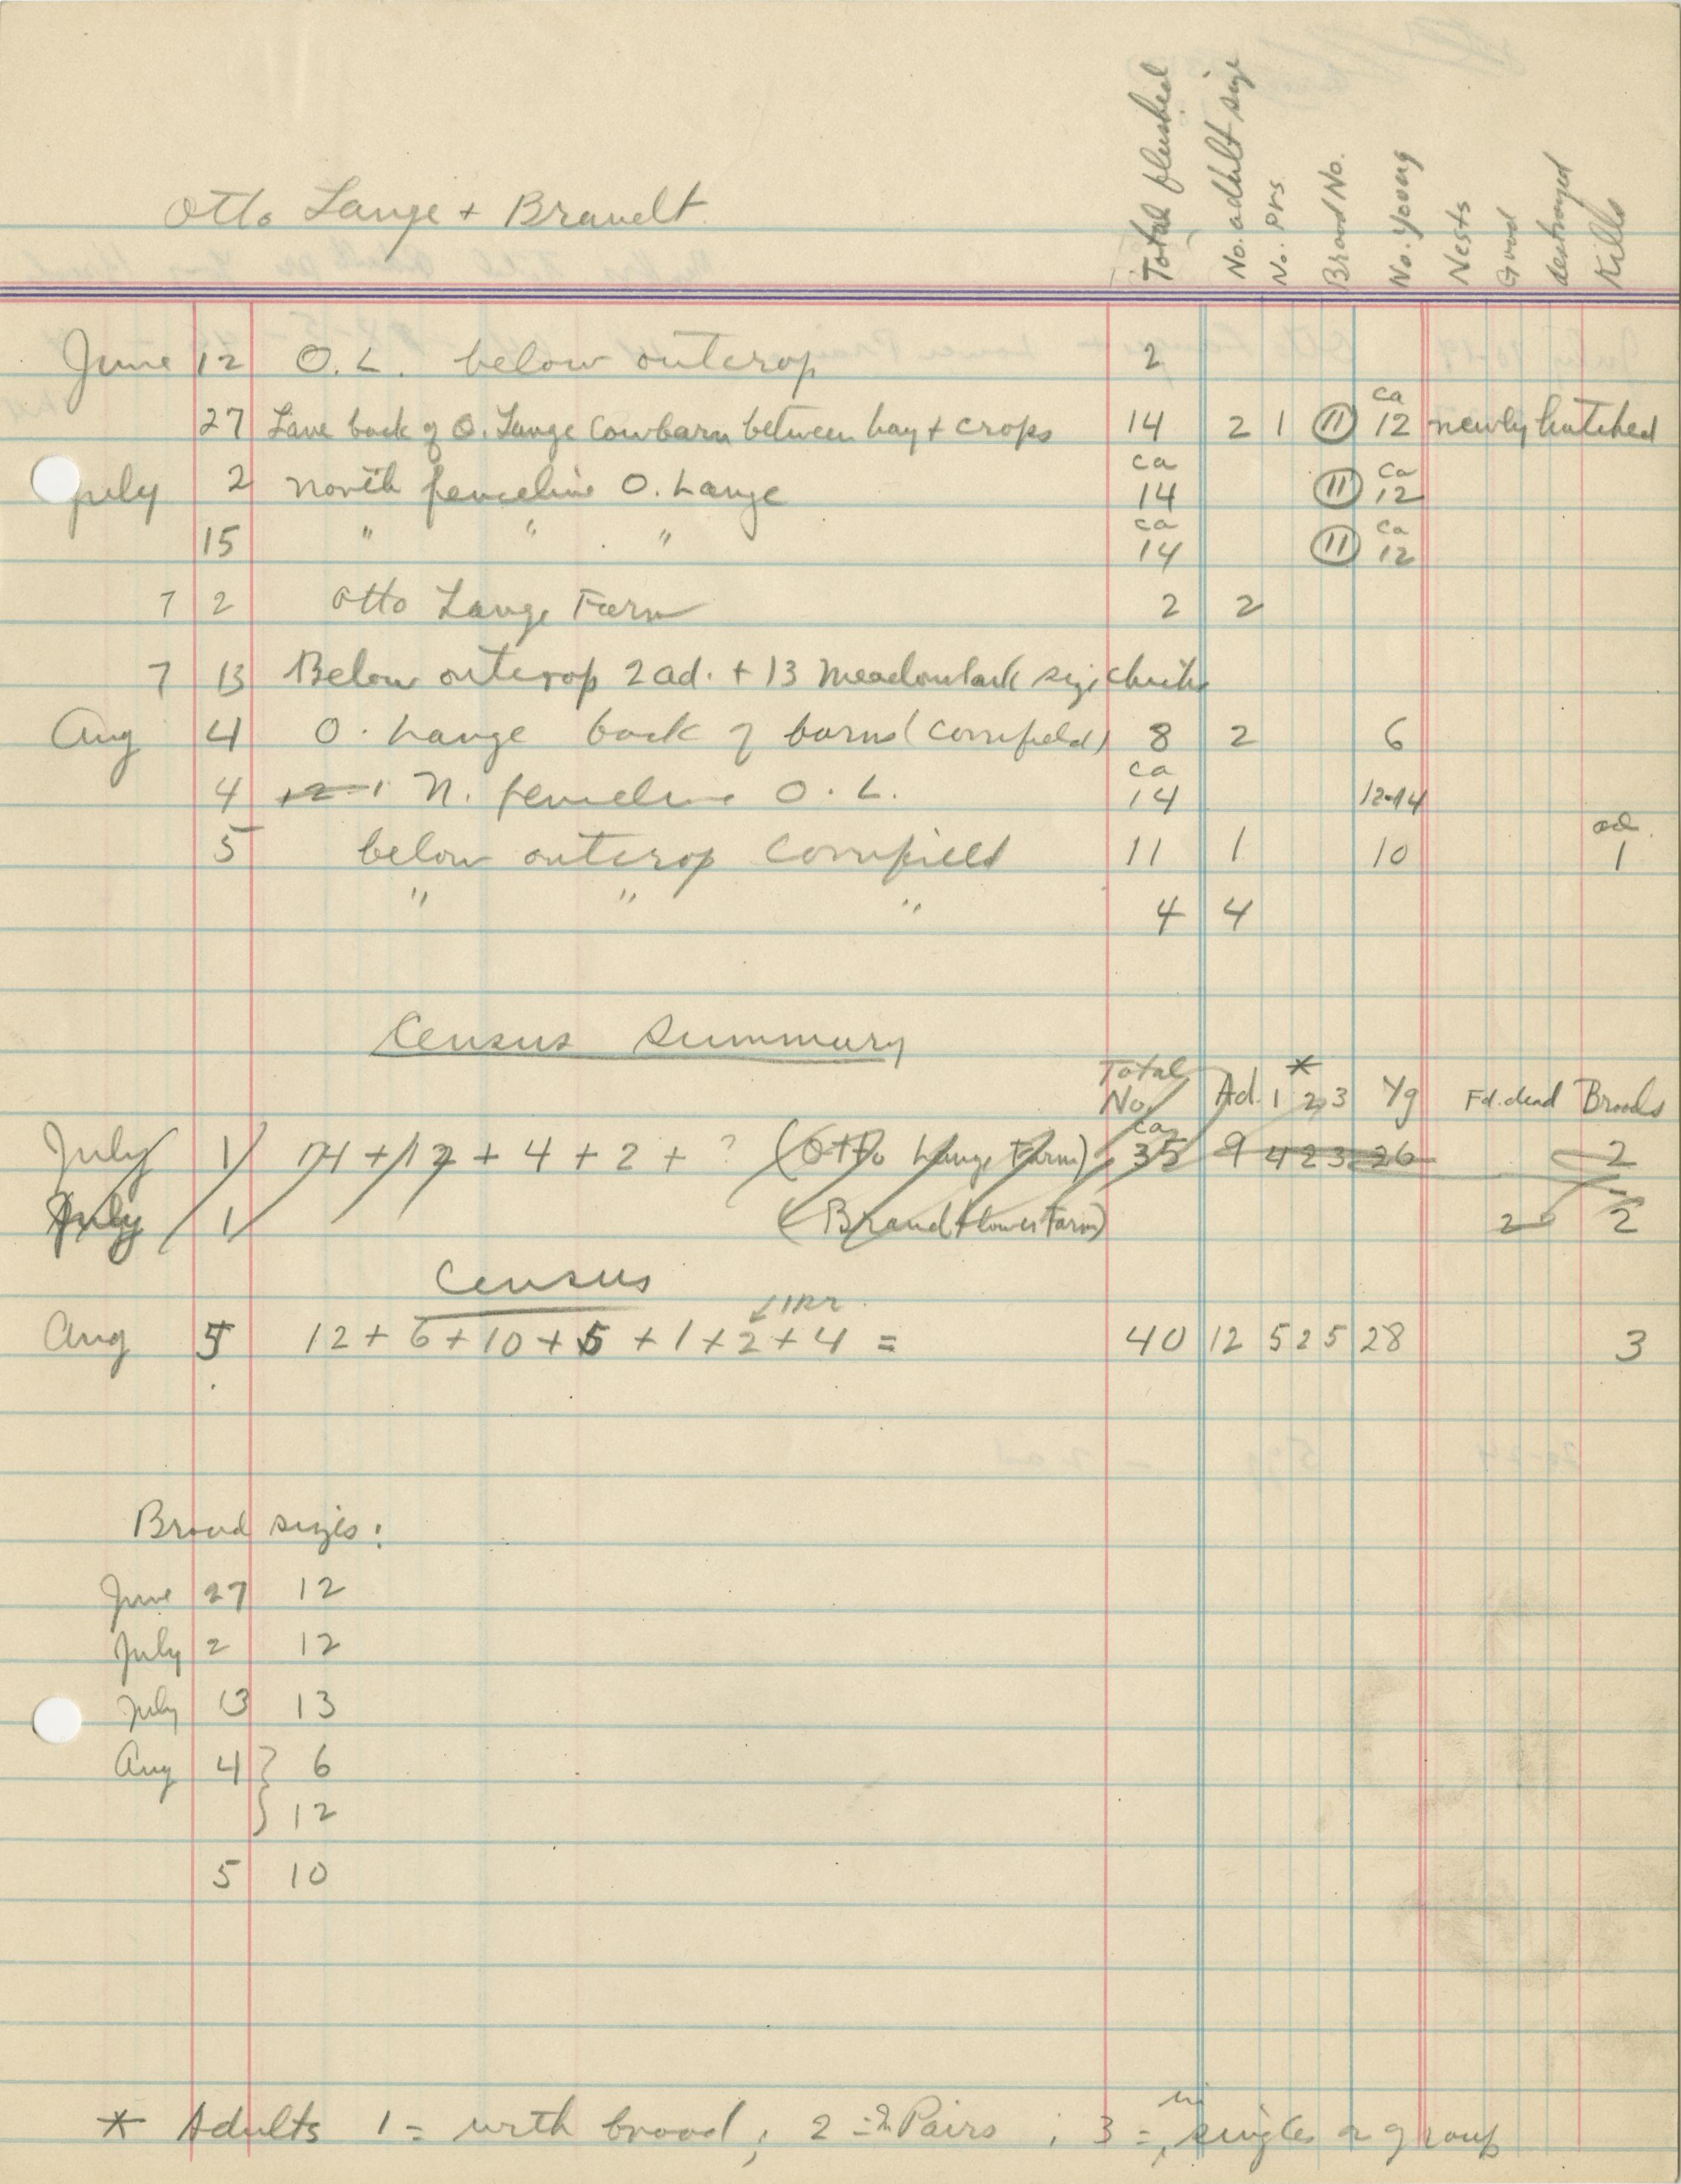 Otto Lange + Brandt
Total flushed
No. adult size
No. Prs.
Brood No.
No. Young
Nests
Good
destroyed
Kills
June 12 O.L. below outcrop 2
27 Lane back of O. Lange Cowbarn between hay + crops 14 2 1 11 ca 12 newly hatched
July 2 north fenceline O. Lange ca 14 11 ca 12
15 " " " ca 14 11 ca 12
7 2 Otto Lange Farm 2 2
7 13 Below outcrop 2 ad. + 13 meadowlark size chicks
Aug 4 O. Lange back of barns (cornfield) 8 2 6
4 N. fenceline O.L. ca 14 12-14
5 below outcrop cornfield 11 1 10 ad. 1
" " " 4 4
Census Summary
Total No. Ad. 1 2 3 * Yg Fd. dead Broods
July 1 14 + 12 + 4 + 2 + ? (Otto Lange Farm) ca 35 9 4 2 3 26 2
July 1 (Brandt lower Farm) 2 2
Census
Aug 5 12 + 6 + 10 + 5 + 1 + 2 + 4 = 40 12 5 2 5 28 3
↙ 1 Pr
Brood sizes:
June 27 12
July 2 12
July 13 13
Aug 4 } 6
} 12
5 10
* Adults 1 = with brood; 2 = in Pairs; 3 = in singles or group